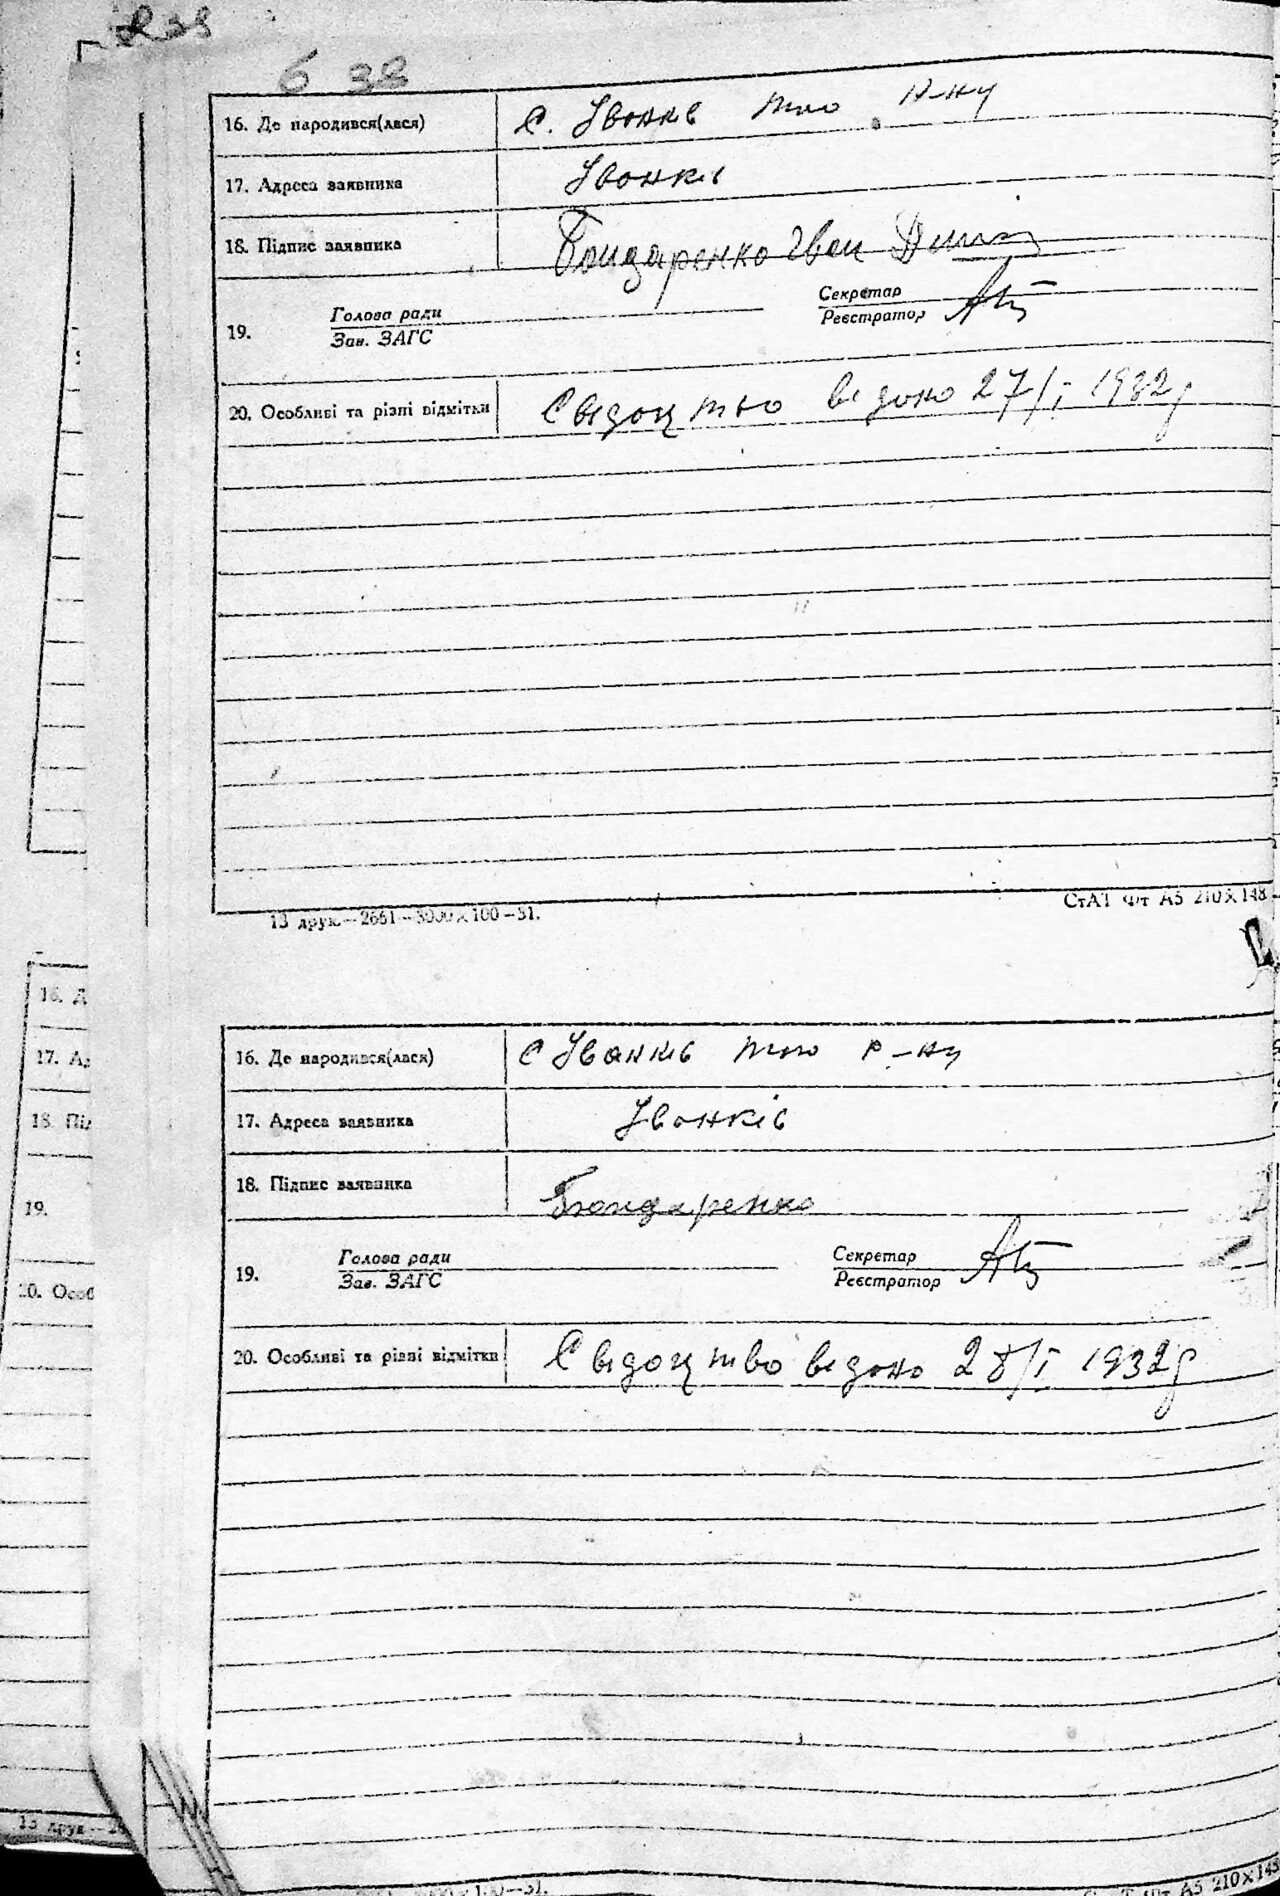 б зв
16. Де народився(лася) с. Іванків того р-ну
17. Адреса заявника Іванків
18. Підпис заявника Бондаренко Іван
19. Голова ради Секретар
Зав. ЗАГС Реєстратор
20. Особливі та різні відмітки Свідоцтво видано 27/I 1932р
13 друк.—2661—3000×100—31. СтАТ Фт А5 210×148
16. Де народився(лася) с Іванків того р-ну
17. Адреса заявника Іванків
18. Підпис заявника Бондаренко
19. Голова ради Секретар
Зав. ЗАГС Реєстратор
20. Особливі та різні відмітки Свідоцтво видано 28/I 1932р
16. Д
17. А
18. Під
19.
20. Особ
13 друк—2
100—31. Фт А5 210×148